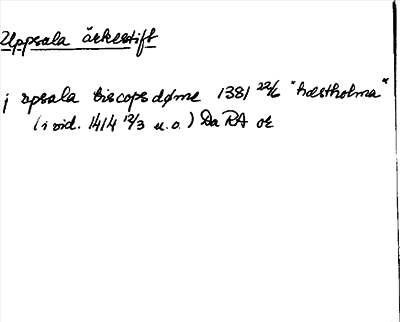 Uppsala ärkestift
j upsala biscopsdøme 1381 22/6 "hæstholma"
(i vid. 1414 12/3 u.o.) Da RA or